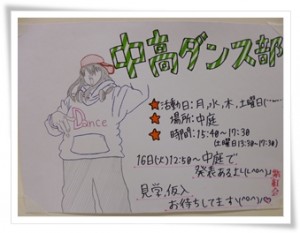 中高ダンス部
Dance
★活動日:月,水,木,土曜日(
★場所:中庭
★時間:15:40〜17:30
(土曜日13:30〜17:30)
16日(火)12:50〜中庭で
発表あるよ!(^o^)
見学,仮入
お待ちしてます\(^o^)/♡